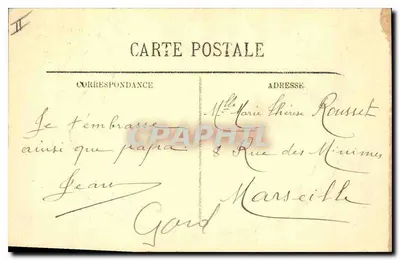 II
CARTE POSTALE
CORRESPONDANCE
ADRESSE
Je t'embrasse
ainsi que papa
Jean
Mlle Marie Thérèse Rousset
8 Rue des Minimes
Marseille
Gard
CPAPHIL